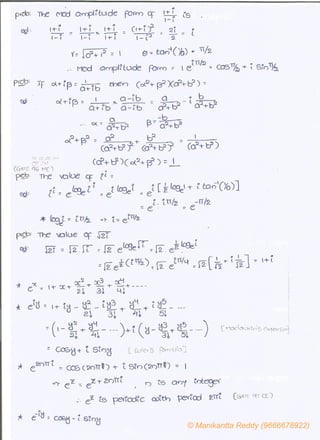 pb: The mod amplitude form of (1+i)/(1-i) is
sol: (1+i)/(1-i) = (1+i)/(1-i) × (1+i)/(1+i) = (1+i)²/(1-i²) = 2i/2 = i
r = √(0²+1²) = 1 θ = tan⁻¹(1/0) = π/2
∴ Mod amplitude form = 1 e^(iπ/2) = cos π/2 + i sin π/2
pb: If α+iβ = 1/(a+ib) then (α²+β²)(a²+b²) =
sol: α+iβ = 1/(a+ib) × (a-ib)/(a-ib) = a/(a²+b²) - i b/(a²+b²)
∴ α = a/(a²+b²) β = -b/(a²+b²)
α²+β² = a²/(a²+b²)² + b²/(a²+b²)² = 1/(a²+b²)
(a²+b²)(α²+β²) = 1
pb: The value of i^i =
sol: i^i = e^(log i^i) = e^(i log i) = e^(i[½ log 1 + i tan⁻¹(1/0)])
= e^(i · iπ/2) = e^(-π/2)
* log i = iπ/2 → i = e^(iπ/2)
pb: The value of √2i
sol: √2i = √2 √i = √2 e^(log √i) = √2 e^(½ log i)
= √2 e^(½(iπ/2)) = √2 e^(iπ/4) = √2 [1/√2 + i 1/√2] = 1+i
* e^x = 1 + x + x²/2! + x³/3! + x⁴/4! + ----
* e^(iy) = 1 + iy - y²/2! - iy³/3! + y⁴/4! + i y⁵/5! - ---
= (1 - y²/2! + y⁴/4! - ---) + i (y - y³/3! + y⁵/5! - --)
= cos y + i sin y
* e^(2nπi) = cos(2nπ) + i sin(2nπ) = 1
→ e^z = e^(z+2nπi), n is any integer
∴ e^z is periodic with period 2πi
* e^(-iy) = cos y - i sin y
© Manikantta Reddy (9666678922)